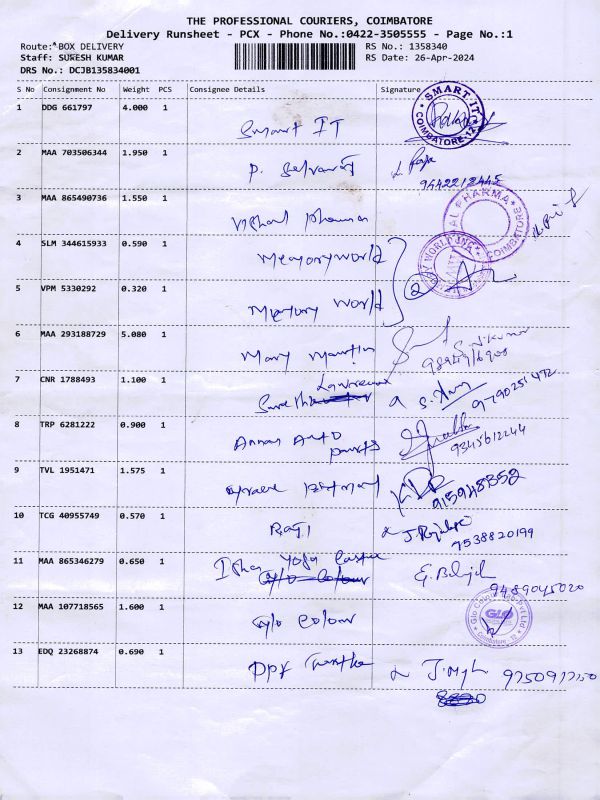 THE PROFESSIONAL COURIERS, COIMBATORE
Delivery Runsheet - PCX - Phone No.:0422-3505555 - Page No.:1
Route: BOX DELIVERY
Staff: SURESH KUMAR
DRS No.: DCJB135834001
RS No.: 1358340
RS Date: 26-Apr-2024
S No Consignment No Weight PCS Consignee Details Signature
1 DDG 661797 4.000 1 Smart IT
SMART IT COIMBATORE-12
2 MAA 703506344 1.950 1 P. Selvaraj
3 MAA 865490736 1.550 1 Vishal Pharma
PHARMA COIMBATORE
4 SLM 344615933 0.590 1 Memory World
WORLD INC
5 VPM 5330292 0.320 1 Memory World
2
6 MAA 293188729 5.080 1 Mary Martin
7 CNR 1788493 1.100 1 Lawrence
9790251472
8 TRP 6281222 0.900 1 Annai Auto parts
9345612244
9 TVL 1951471 1.575 1
915948352
10 TCG 40955749 0.570 1 Raji
7538820199
11 MAA 865346279 0.650 1 Isha Yoga
9489045020
12 MAA 107718565 1.600 1 Glo Colour
Glo Colour Pvt Ltd GLO Coimbatore - 12
13 EDQ 23268874 0.690 1